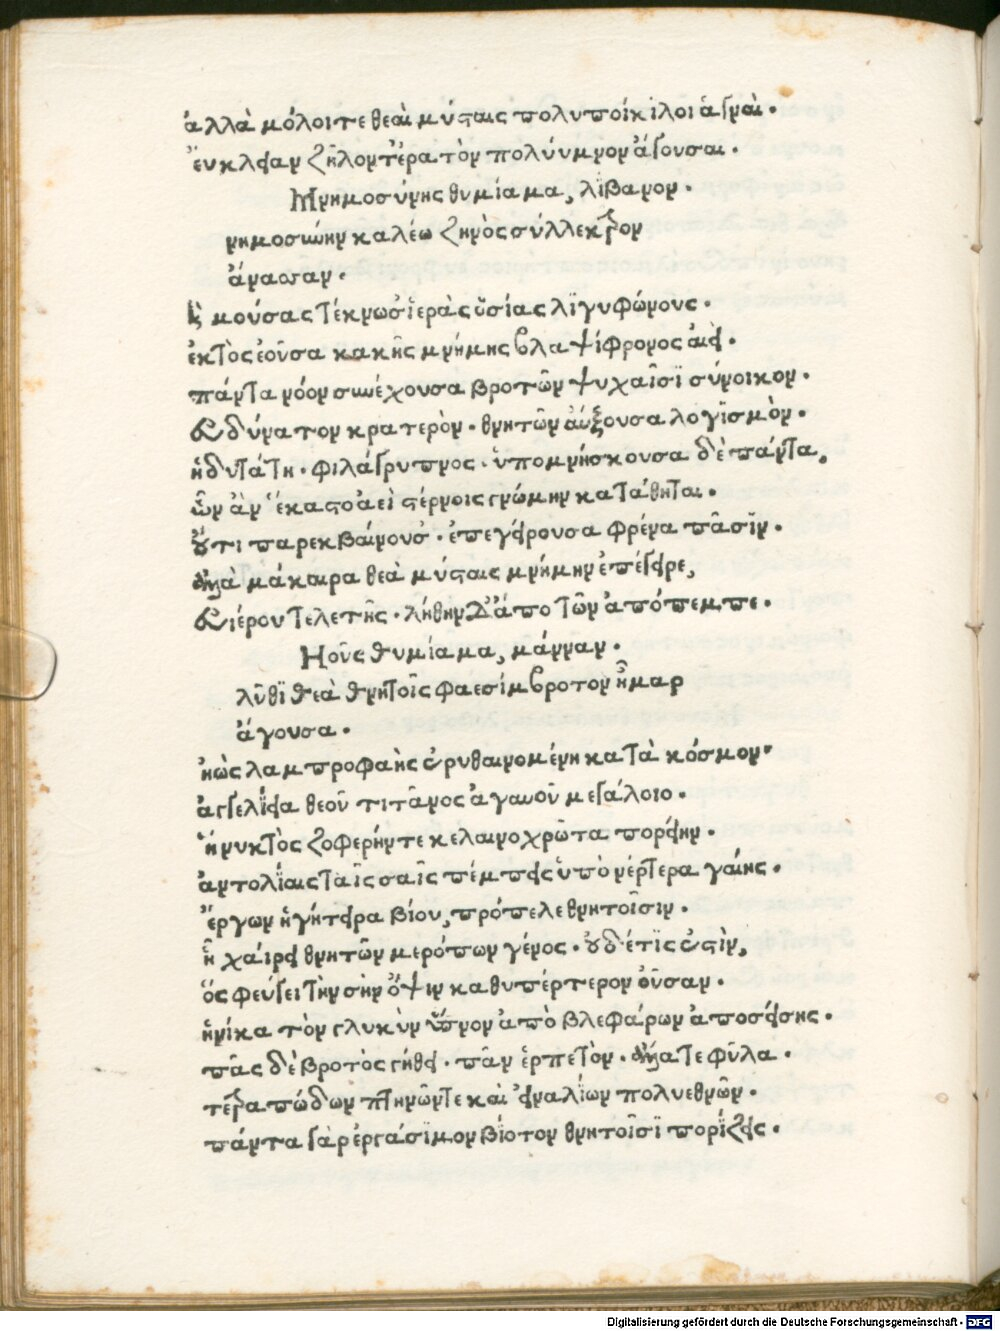 ἀλλὰ μόλοιτε θεαὶ μύσταις πολυποίκιλοι ἁγναὶ.
ἔυκλειαν ζῆλόντ' ἐρατὸν πολύυμνον ἄγουσαι.
Μνημοσύνης θυμίαμα, λίβανον.
νημοσύνην καλέω ζηνὸς σύλλεκτρον
ἄνασσαν.
ἣ μούσας τέκνωσ' ἱερὰς ὁσίας λιγυφώνους.
ἐκτὸς ἐοῦσα κακῆς μνήμης βλαψίφρονος αἰεὶ.
πάντα νόον συνέχουσα βροτῶν ψυχαῖσι σύνοικον.
εὐδύνατον κρατερὸν. θνητῶν αὔξουσα λογισμὸν.
ἡδυτάτη. φιλάγρυπνος. ὑπομνήσκουσα δὲ πάντα,
ὧν ἂν ἕκαστος ἀεὶ στέρνοις γνώμην κατάθηται.
οὔτι παρεκβαίνουσ'. ἐπεγείρουσα φρένα πᾶσιν.
ἀλλὰ μάκαιρα θεὰ μύσταις μνήμην ἐπέγειρε,
εὐιέρου τελετῆς. λήθην δ' ἀπὸ τῶν ἀπόπεμπε.
Ηοῦς θυμίαμα, μάνναν.
λῦθι θεὰ θνητοῖς φαεσίμβροτον ἦμαρ
ἄγουσα.
ἠὼς λαμπροφαὴς ἐρυθαινομένη κατὰ κόσμον
ἀγγελίεια θεοῦ τιτᾶνος ἀγαυοῦ μεγάλοιο.
ἡ νυκτὸς ζοφερήν τε κελαινοχρῶτα πορείην.
ἀντολίαις ταῖς σαῖς πέμπεις ὑπὸ νέρτερα γαίης.
ἔργων ἡγήτειρα βίου, πρόπελε θνητοῖσιν.
ἧ χαίρει θνητῶν μερόπων γένος. οὐδέ τις ἐστὶν,
ὃς φεύγει τὴν σὴν ὄψιν καθυπέρτερον οὖσαν.
ἡνίκα τὸν γλυκὺν ὕπνον ἀπὸ βλεφάρων ἀποσείσης.
πᾶς δὲ βροτὸς γήθει. πᾶν ἑρπετὸν. ἀλλά τε φῦλα.
τετραπόδων πτηνῶν τε καὶ εἰναλίων πολυεθνῶν.
πάντα γὰρ ἐργάσιμον βίοτον θνητοῖσι πορίζεις.
Digitalisierung gefördert durch die Deutsche Forschungsgemeinschaft - DFG